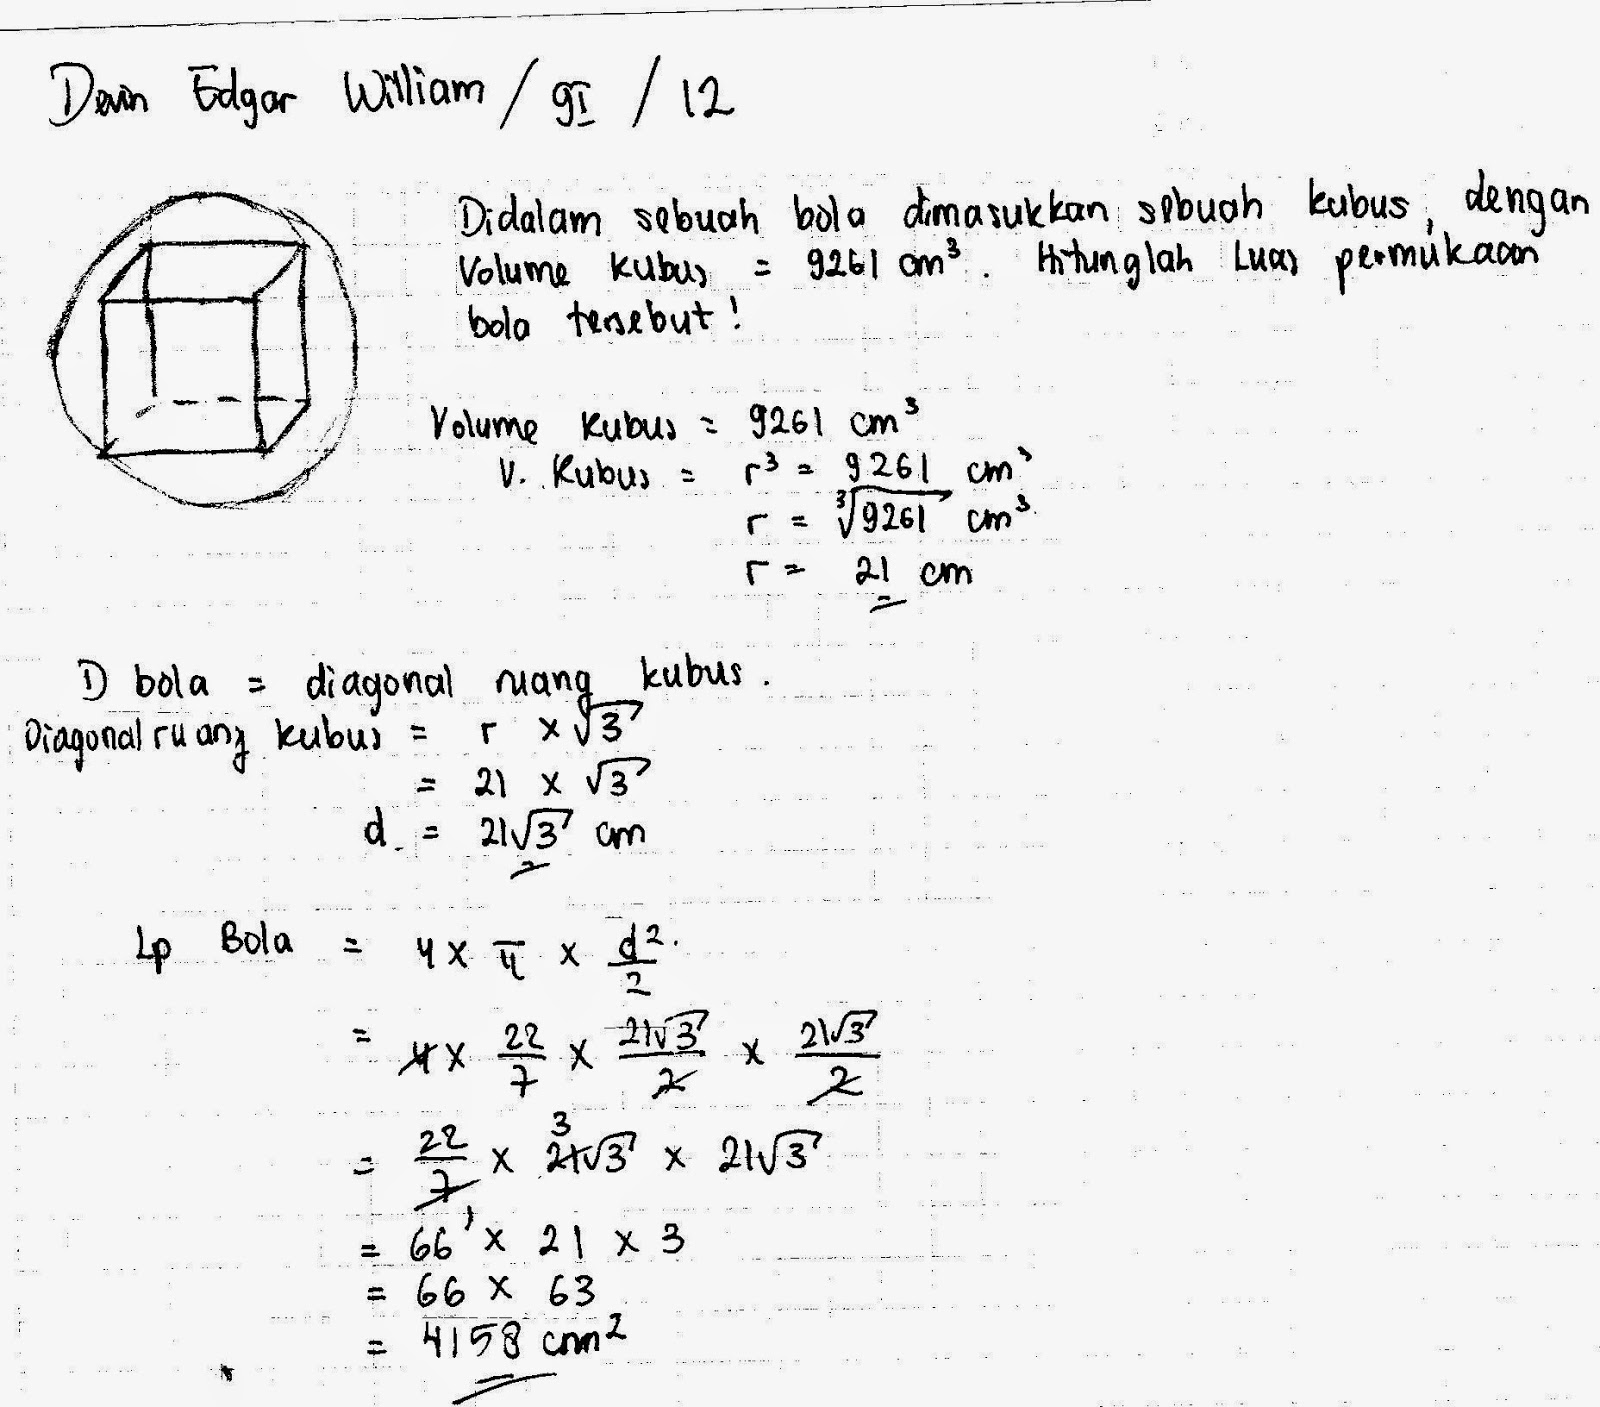 Devin Edgar William / 9I / 12
Didalam sebuah bola dimasukkan sebuah kubus, dengan
Volume kubus = 9261 cm³. Hitunglah Luas permukaan
bola tersebut!
Volume Kubus = 9261 cm³
V. Kubus = r³ = 9261 cm³
r = ∛9261 cm³
r = 21 cm
D bola = diagonal ruang kubus.
Diagonal ruang kubus = r × √3
= 21 × √3
d = 21√3 cm
Lp Bola = 4 × π × d²/2
= 4 × 22/7 × 21√3/2 × 21√3/2
= 22/7 × 21√3 × 21√3
3
1
= 66 × 21 × 3
= 66 × 63
= 4158 cm²